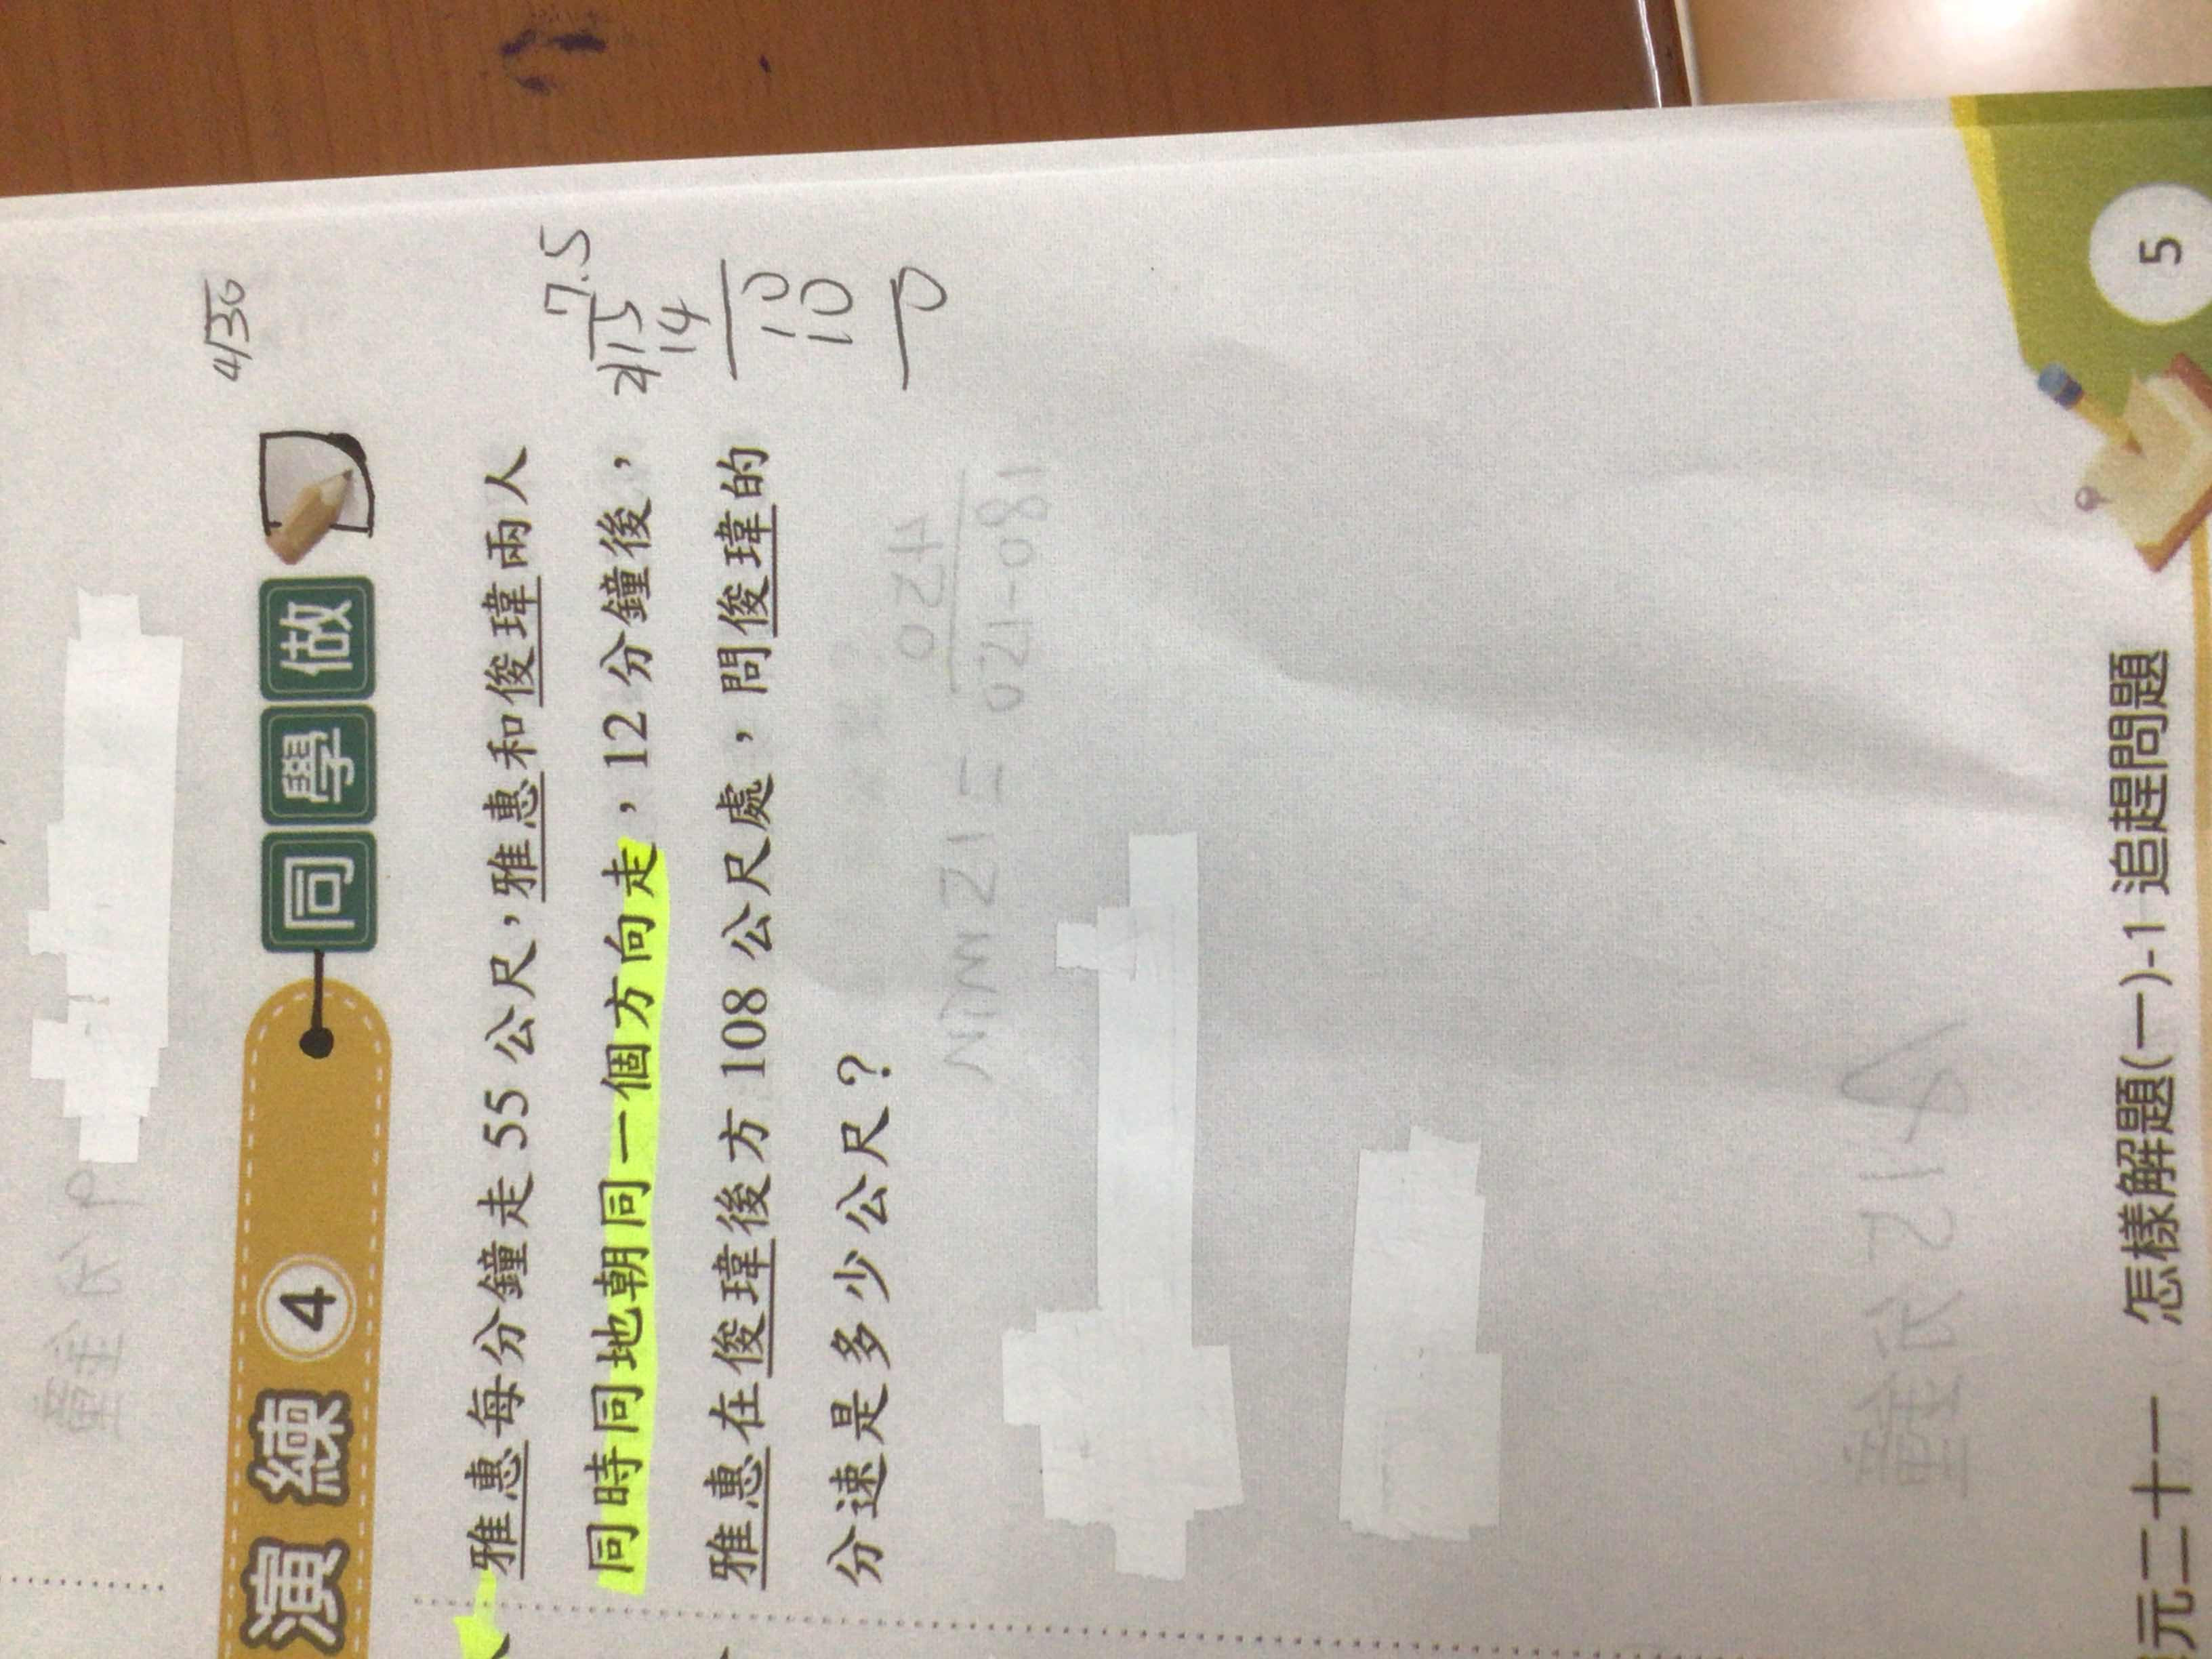 演練 4 同學做
4/36
雅惠每分鐘走 55 公尺，雅惠和俊瑋兩人
同時同地朝同一個方向走，12 分鐘後，
雅惠在俊瑋後方 108 公尺處，問俊瑋的
分速是多少公尺？
7.5
15
14
10
10
0
元二十一 怎樣解題(一)-1 追趕問題
5